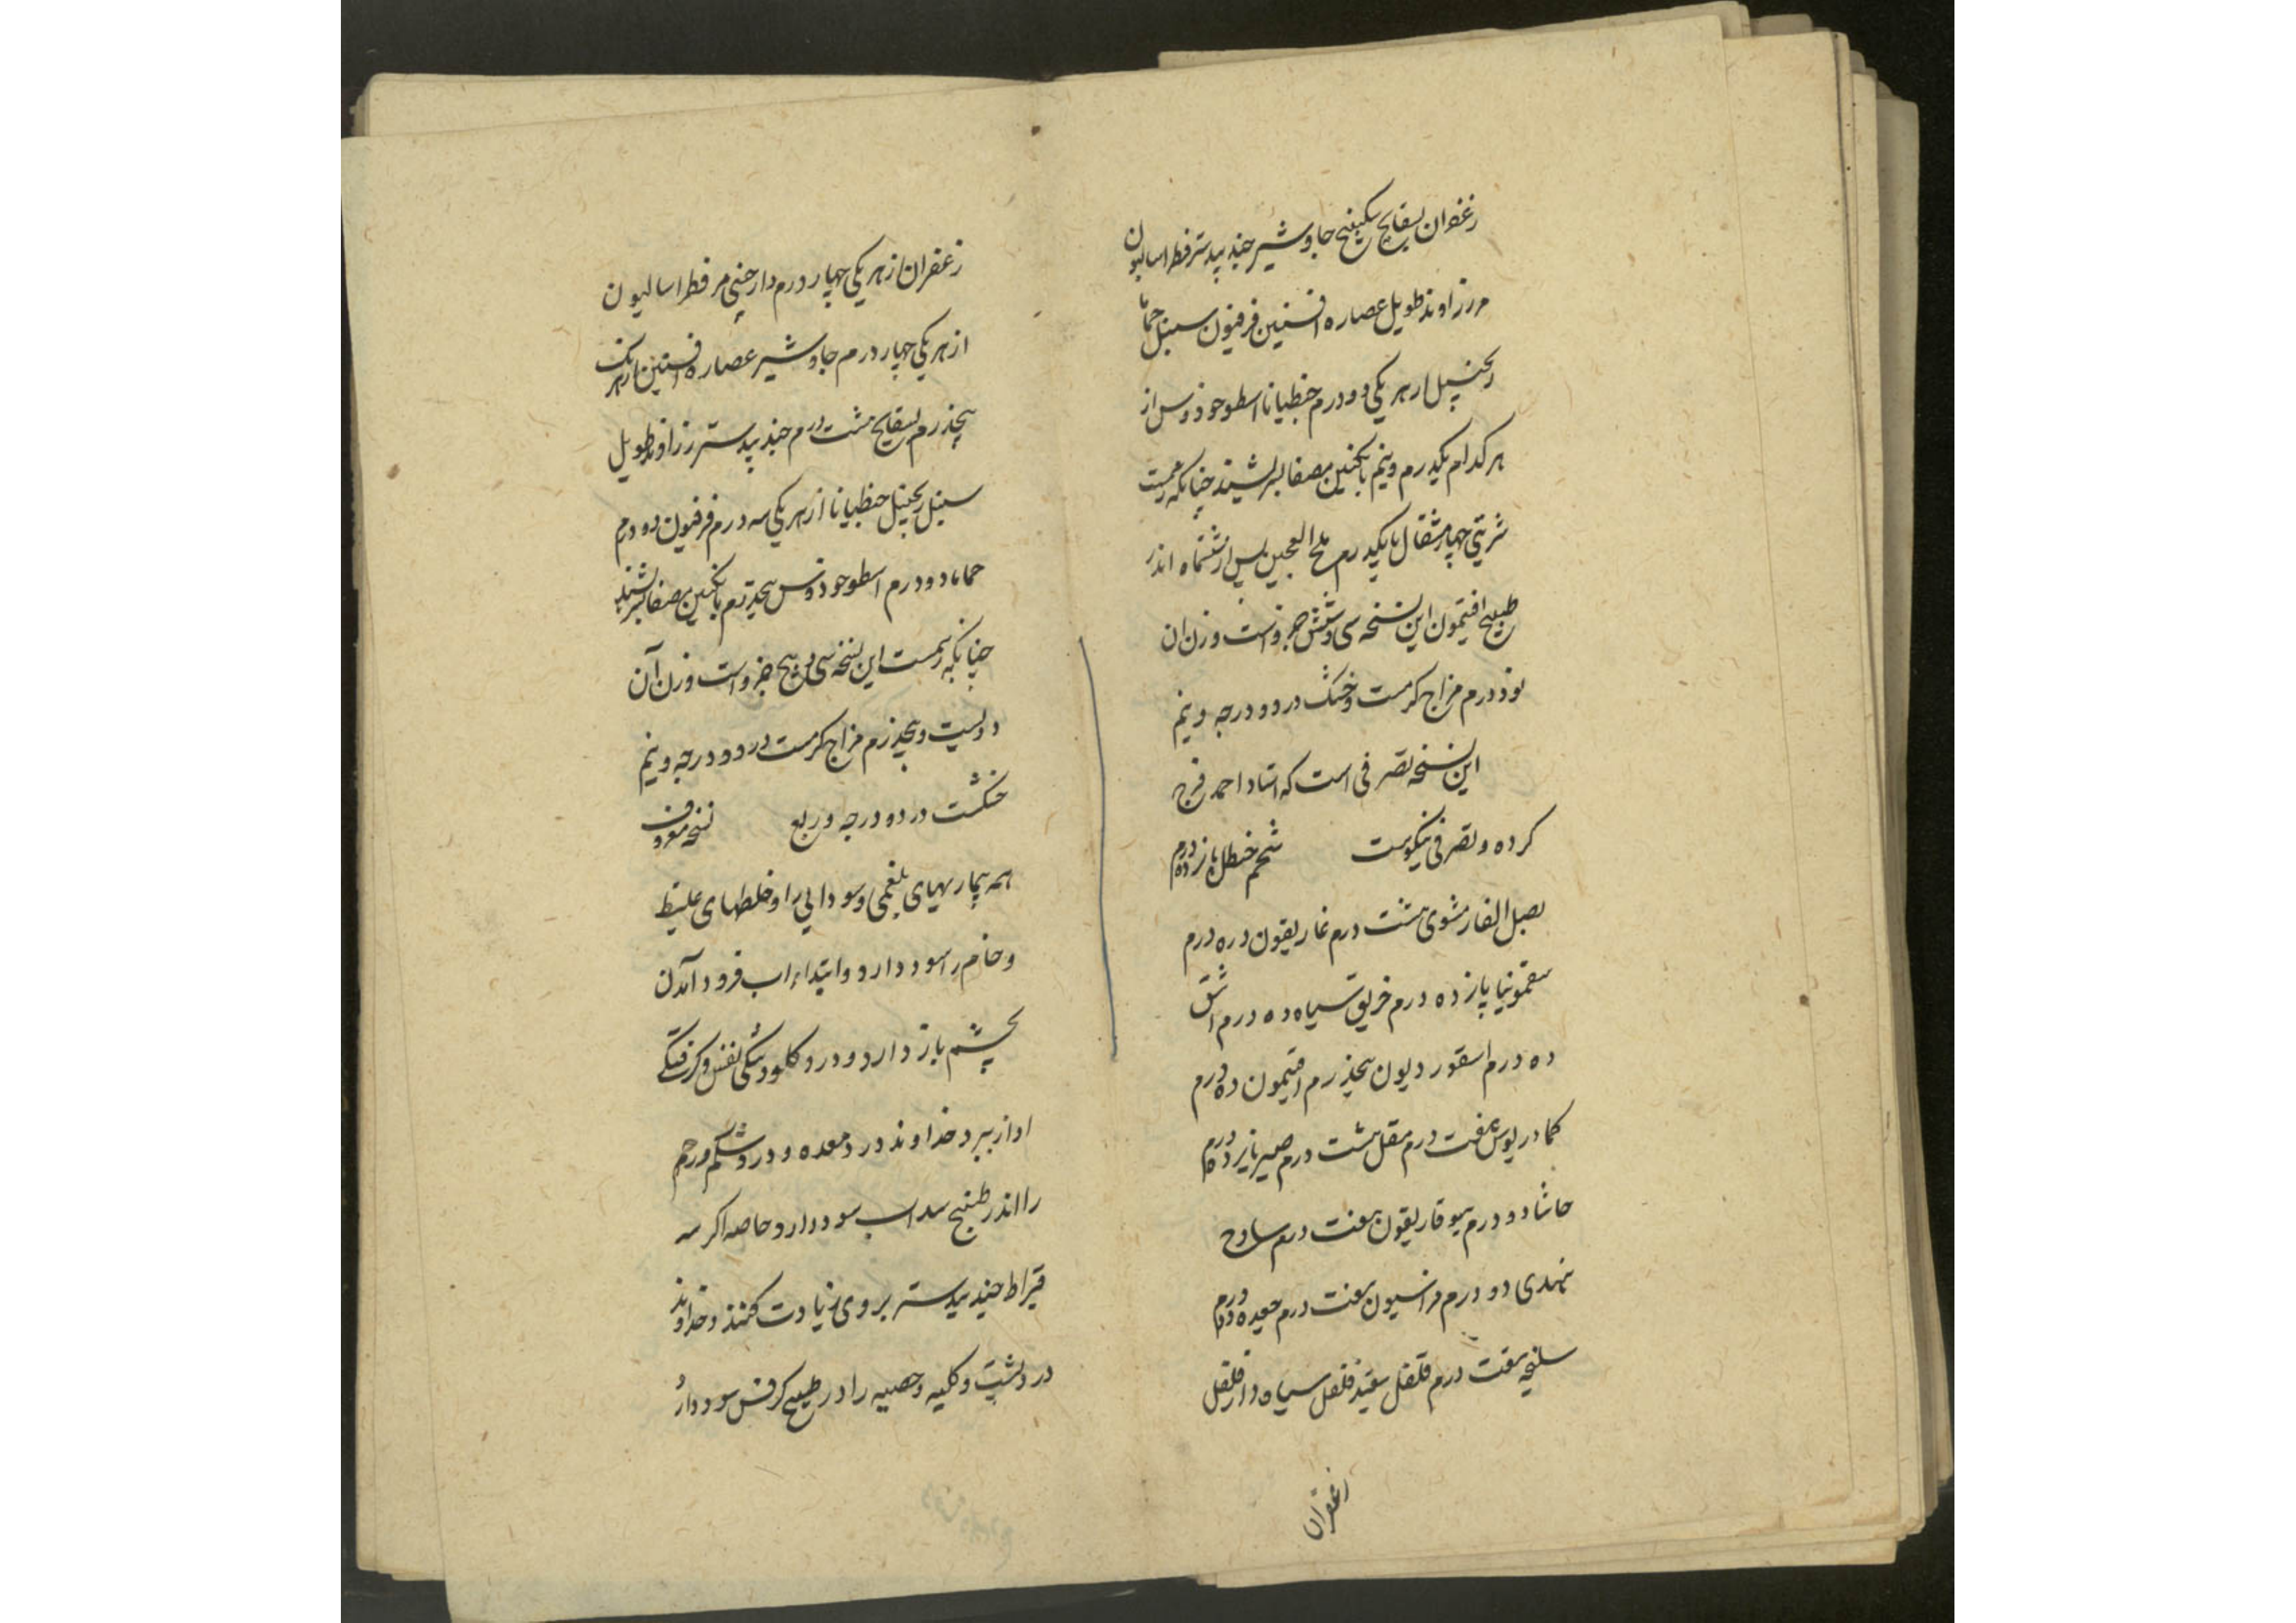 زعفران بسفایج سکبینج جاوشیر جندبیدستر فطراسالیون
مر زراوند طویل عصاره افسنتین فرفیون سنبل حماما
زنجبیل از هر یکی دو درم جنطیانا اسطوخودوس از
هر کدام یکدرم و نیم بانگبین مصفا بسرشند چنانکه رسمست
شربتی چهار مثقال با یکدرم ملح العجین پس از ششماه اندر
طبیخ افتیمون این نسخه سی و شش جزو است وزن ان
نود درم مزاج کرمست و خشک در دو درجه و نیم
این نسخه تصرفی است که استاد احمد فرج
کرده و تصرفی نیکوست شحم حنظل پانزده درم
بصل الفار مشوی هشت درم غاریقون ده درم
سقمونیا پانزده درم خربق سیاه ده درم اشق
ده درم اسقوردیون پنجدرم افتیمون ده درم
کمادریوس هفت درم مقل هشت درم صبر پانزده درم
حاشا دو درم هیوفاریقون هفت درم ساذج
هندی دو درم فراسیون هفت درم جعده ده درم
سلیخه هفت درم فلفل سفید فلفل سیاه دارفلفل
زعفران
زعفران از هر یکی چهار درم دارچینی مر فطراسالیون
از هر یکی چهار درم جاوشیر عصاره افسنتین از هر یک
پنجدرم بسفایج هشت درم جندبیدستر زراوند طویل
سنبل زنجبیل جنطیانا از هر یکی سه درم فرفیون ده درم
حماما دو درم اسطوخودوس پنجدرم بانگبین مصفا بسرشند
چنانکه رسمست این نسخه سی و پنج جزو است وزن آن
دویست و پنجدرم مزاج کرمست در دو درجه و نیم
خشکست در دو درجه و ربع نسخه معروف
همه بیماریهای بلغمی و سودایی را و خلطهای غلیظ
و خام را سود دارد و ابتداء اب فرود آمدن
بچشم باز دارد و درد کلو و تنکی نفس و کرفتکی
اواز ببرد خداوند درد معده و درد شکم و رحم
را اندر طبیخ سداب سود دارد خاصه اکر سه
قیراط جندبیدستر بر وی زیادت کنند و خداوند
درد پشت و کلیه و خصیه را در طبیخ کرفس سود دارد